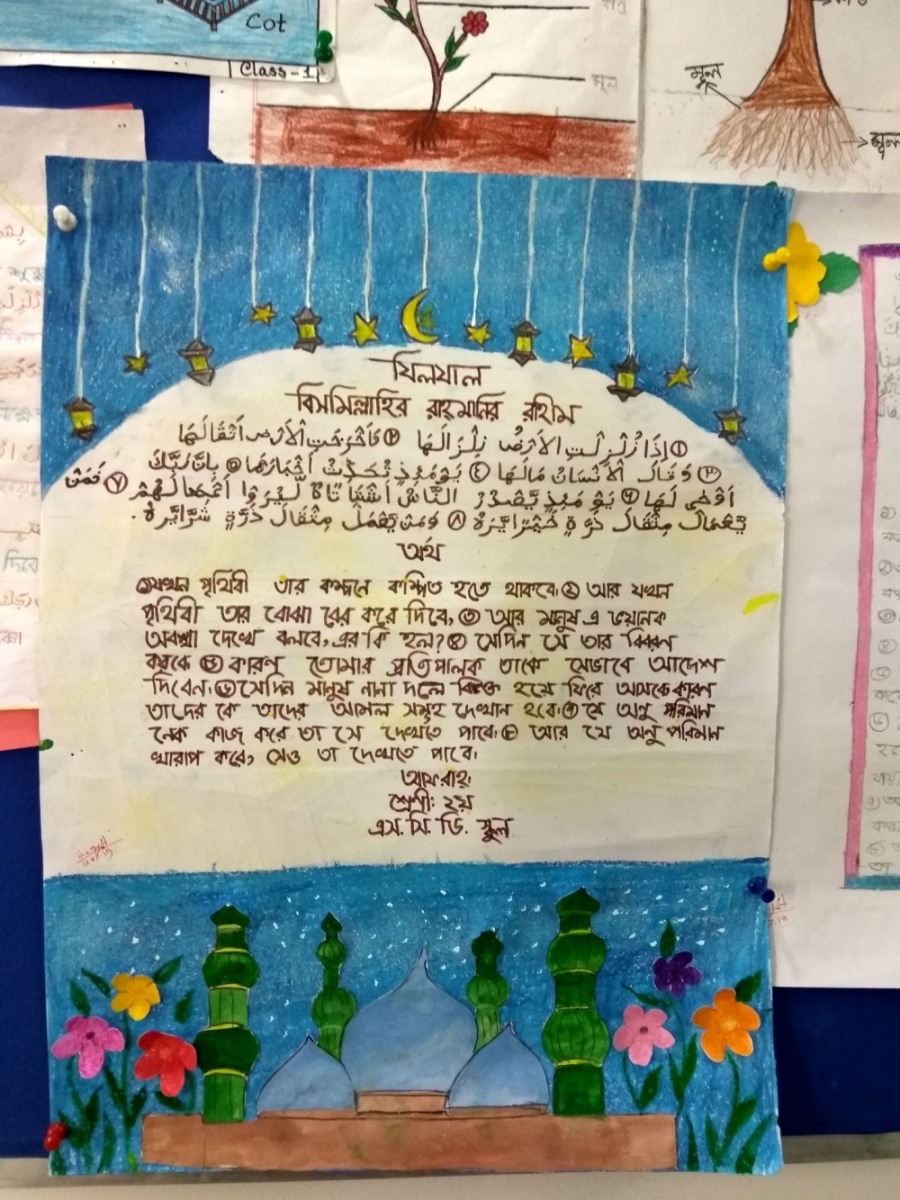 Cot
Class-1
মূল
মূল
মূল
যিলযাল
বিসমিল্লাহির রাহমানির রহীম
① إِذَا زُلْزِلَتِ الْأَرْضُ زِلْزَالَهَا ② وَأَخْرَجَتِ الْأَرْضُ أَثْقَالَهَا
③ وَقَالَ الْأِنْسَانُ مَالَهَا ④ يَوْمَئِذٍ تُحَدِّثُ أَخْبَارَهَا ⑤ بِأَنَّ رَبَّكَ
أَوْحَى لَهَا ⑥ يَوْمَئِذٍ يَّصْدُرُ النَّاسُ أَشْتَاتًا لِّيُرَوْا أَعْمَالَهُمْ ⑦ فَمَنْ
يَّعْمَلْ مِثْقَالَ ذَرَّةٍ خَيْرًا يَّرَهُ ⑧ وَمَنْ يَّعْمَلْ مِثْقَالَ ذَرَّةٍ شَرًّا يَّرَهُ.
অর্থ
①যখন পৃথিবী তার কম্পনে কম্পিত হতে থাকবে।② আর যখন
পৃথিবী তার বোঝা বের করে দিবে,③ আর মানুষ এ ভয়ানক
অবস্থা দেখে বলবে, এর কি হল?④ সেদিন সে তার বিবরণ
করবে ⑤ কারণ তোমার প্রতিপালক তাকে সেভাবে আদেশ
দিবেন।⑥সেদিন মানুষ নানা দলে বিভক্ত হয়ে ফিরে আসবে কারণ
তাদের কে তাদের আমল সমূহ দেখান হবে।⑦ যে অনু পরিমান
নেক কাজ করে তা সে দেখতে পাবে।⑧ আর যে অনু পরিমান
খারাপ করে, সেও তা দেখতে পাবে।
আফরাহ্
শ্রেণী: ২য়
এস. সি. ডি. স্কুল